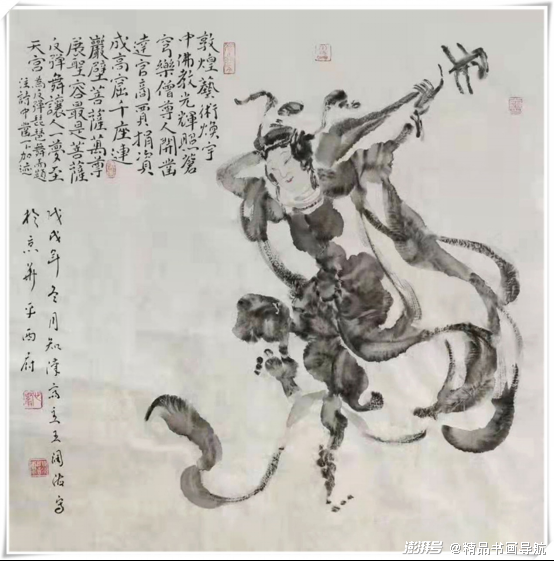 敦煌藝術煥宇
中佛教光輝照蒼
穹樂僧尊人開凿
達官商賈捐資
成高窟千座連
巖壁菩薩萬尊
展聖容最是菩薩
反弹舞讓人夢至
天宮 為反弹琵琶舞而題
注詩中 下加
戊戌年冬月知津齋主王 寫
於京華平西府
澎湃号 @精品书画导航